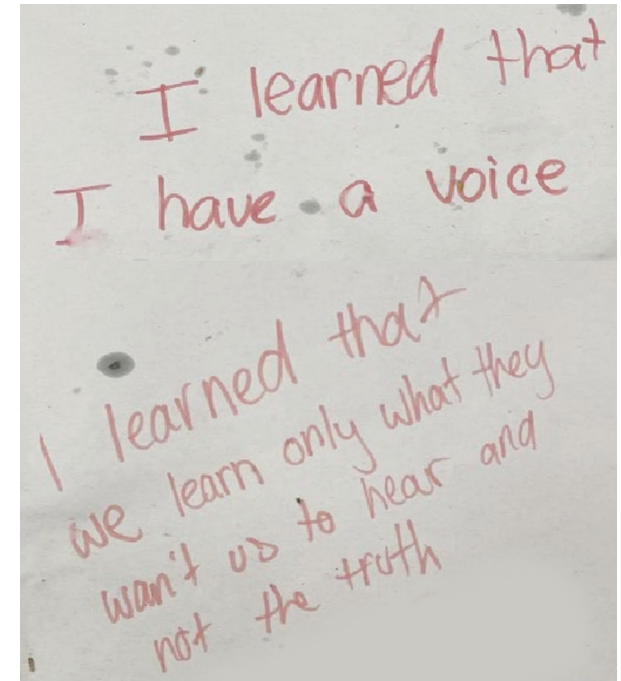 I learned that
I have a voice
I learned that
we learn only what they
wan't us to hear and
not the truth